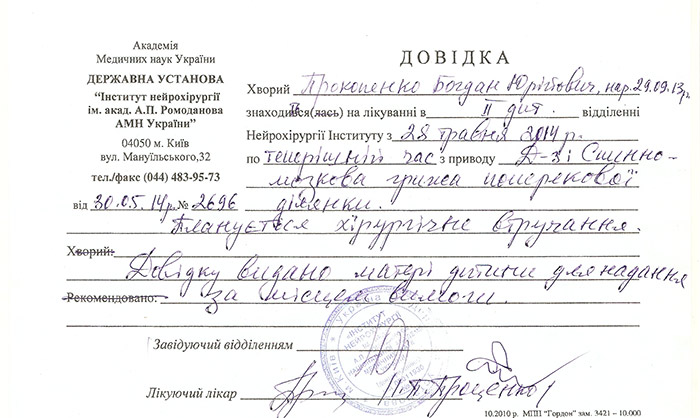 Академія
Медичних наук України
ДЕРЖАВНА УСТАНОВА
“Інститут нейрохірургії
ім. акад. А.П. Ромоданова
АМН України”
04050 м. Київ
вул. Мануїльського,32
тел./факс (044) 483-95-73
від 30.05.14р. № 2696
ДОВІДКА
Хворий Прокопенко Богдан Юрійович, нар. 29.09.13р.
знаходився(лась) на лікуванні в ІІ дит. відділенні
Нейрохірургії Інституту з 28 травня 2014 р.
по теперішній час з приводу Д-з: Спинно-
мозкова грижа поперекової
ділянки.
Планується хірургічне втручання.
Хворий:
Довідку видано матері дитини для надання
Рекомендовано: за місцем вимоги.
Завідуючий відділенням
Лікуючий лікар Проценко
10.2010 р. МПП "Гордон" зам. 3421 – 10.000
ІНСТИТУТ
НЕЙРОХІРУРГІЇ